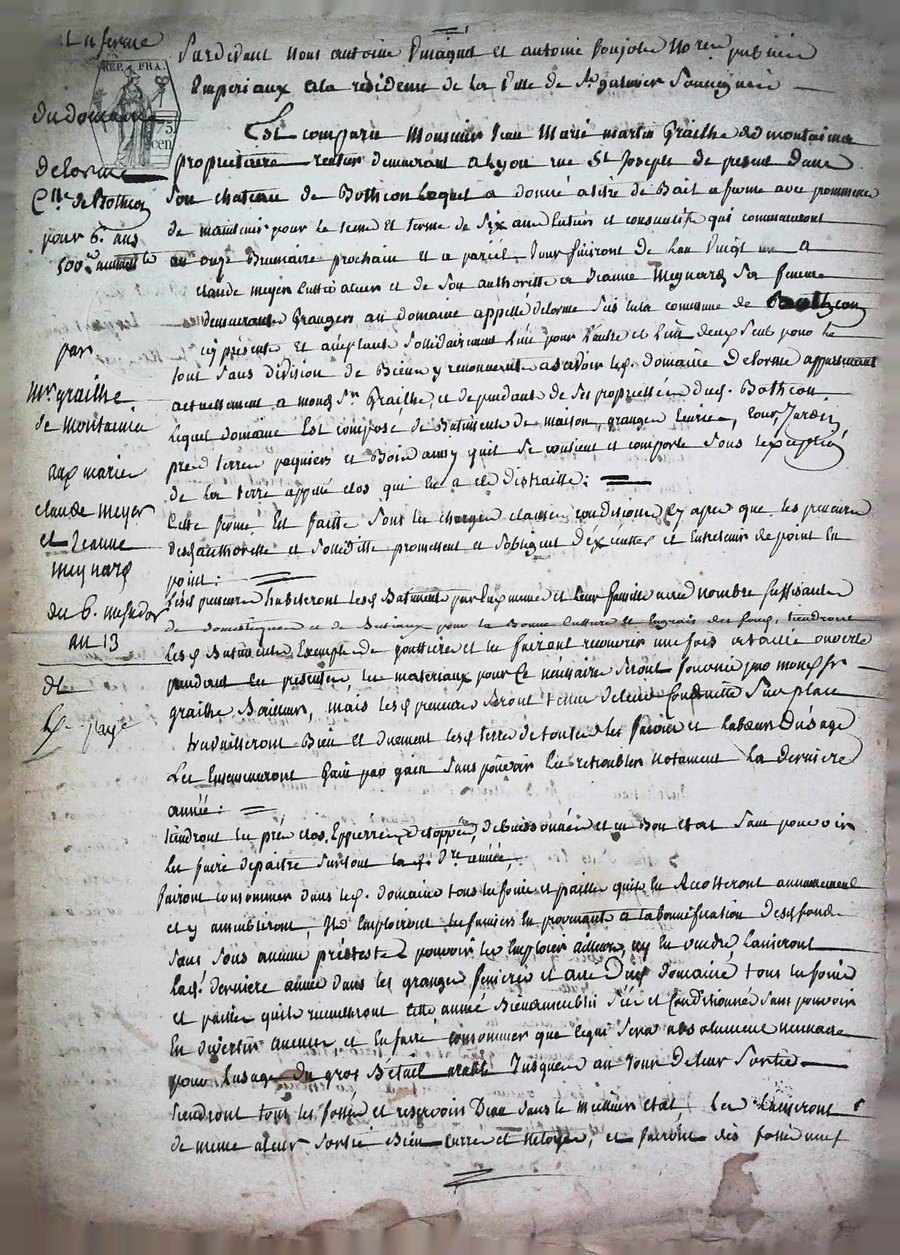 ferme
REP. FRA.
75
cen
du domaine
delorme
Cne de Bothéon
pour 6. ans
500
par
Mr. grailhe
de montaima
aux mariés
claude meyer
et Jeanne
meynard
du 6. messidor
an 13
Pardevant nous antoine et antoine poujol Nores publics
Imperiaux a la residence de la Ville de St. galmier Soussignés
Est comparu Monsieur Jean Marie martin Grailhe de montaima
proprietaire rentier demeurant a Lyon rue St Joseph de present dans
Son chateau de Bothéon Lequel a donné a titre de Bail a ferme avec promesse
de maintenir pour le tems et terme de Six ans Entiers et consecutifs qui commenceront
au onze Brumaire prochain et a pareil Jour finiront de L'an Vingt un a
claude meyer cultivateur et de Son authorité a Jeanne Meynard Sa femme
demeurants Grangers au domaine appellé delorme Sis en la commune de Bothéon
cy présents et acceptants Sollidairement L'un pour L'autre et L'un deux Seul pour le
tout Sans division de Biens y renonçants a Scavoir led. domaine Delorme appartenant
actuellement a mond. Sr Grailhe, et dependant de Ses proprietés dud. Bothéon
Lequel domaine Est composé de Batiments de maison, granges Ecuries, Cour, Jardin
prés terres paquiers et Bois ainsy quil Se contient et comporte Sans exception
de la terre appellé clos qui En a eté distraitte:
Cette ferme Est faitte Sous les charges clauses conditions Cy après que les preneurs
des. authorité et Solidité promettent et s'obligent d'executer et Entretenir de point En
point:
Lesd. preneurs habiteront Lesd. Batiments par Eux mêmes et leur famille avec nombre suffisant
de domestiques et de Bestiaux pour la Bonne Culture et Engrais des fonds, tiendront
Lesd. Batiments Exempts de gouttières et les feront recouvrir une fois a taille ouverte
pendant les presentes, les materiaux pour ce necessaires Seront fournis par mond. Sr
grailhe Bailleur, mais Lesd. preneurs Seront tenus de les Conduire Sur place
travailleront Bien et duement Lesd. terres de toutes les et labeurs d'usage
Les Ensemenceront Gain par gain Sans pouvoir les retroubler notament La derniere
année:
tiendront les prés clos, Eppierrés, Etoppés, debuissonnés et en Bon Etat Sans pouvoir
Les faire depaitre Surtout lad. dre. année,
feront consommer dans led. domaine tous les foins et pailles quils En Recolteront annuellement
et y Ils Employeront les fumiers En provenants a la bonnification Desd. fonds
Sans Sous aucuns prétextes pouvoir les Employer ailleurs, ny En vendre Laisseront
Lad. derniere année dans les granges fenieres et Dud. Domaine tous les foins
et pailles quils recueilleront Cette année Bien Sec et Conditionné Sans pouvoir
En divertir aucuns et En faire consommer que Ce qui Sera absolument necessaire
pour L'usage Du gros Bétail arable Jusques au Jour De leur Sortie
Tiendront tous les fossés et reservoirs D'eau dans le meilleur etat, Les Laisseront
de meme a leur Sortie Bien curés et netoyés, et feront des fossés neufs